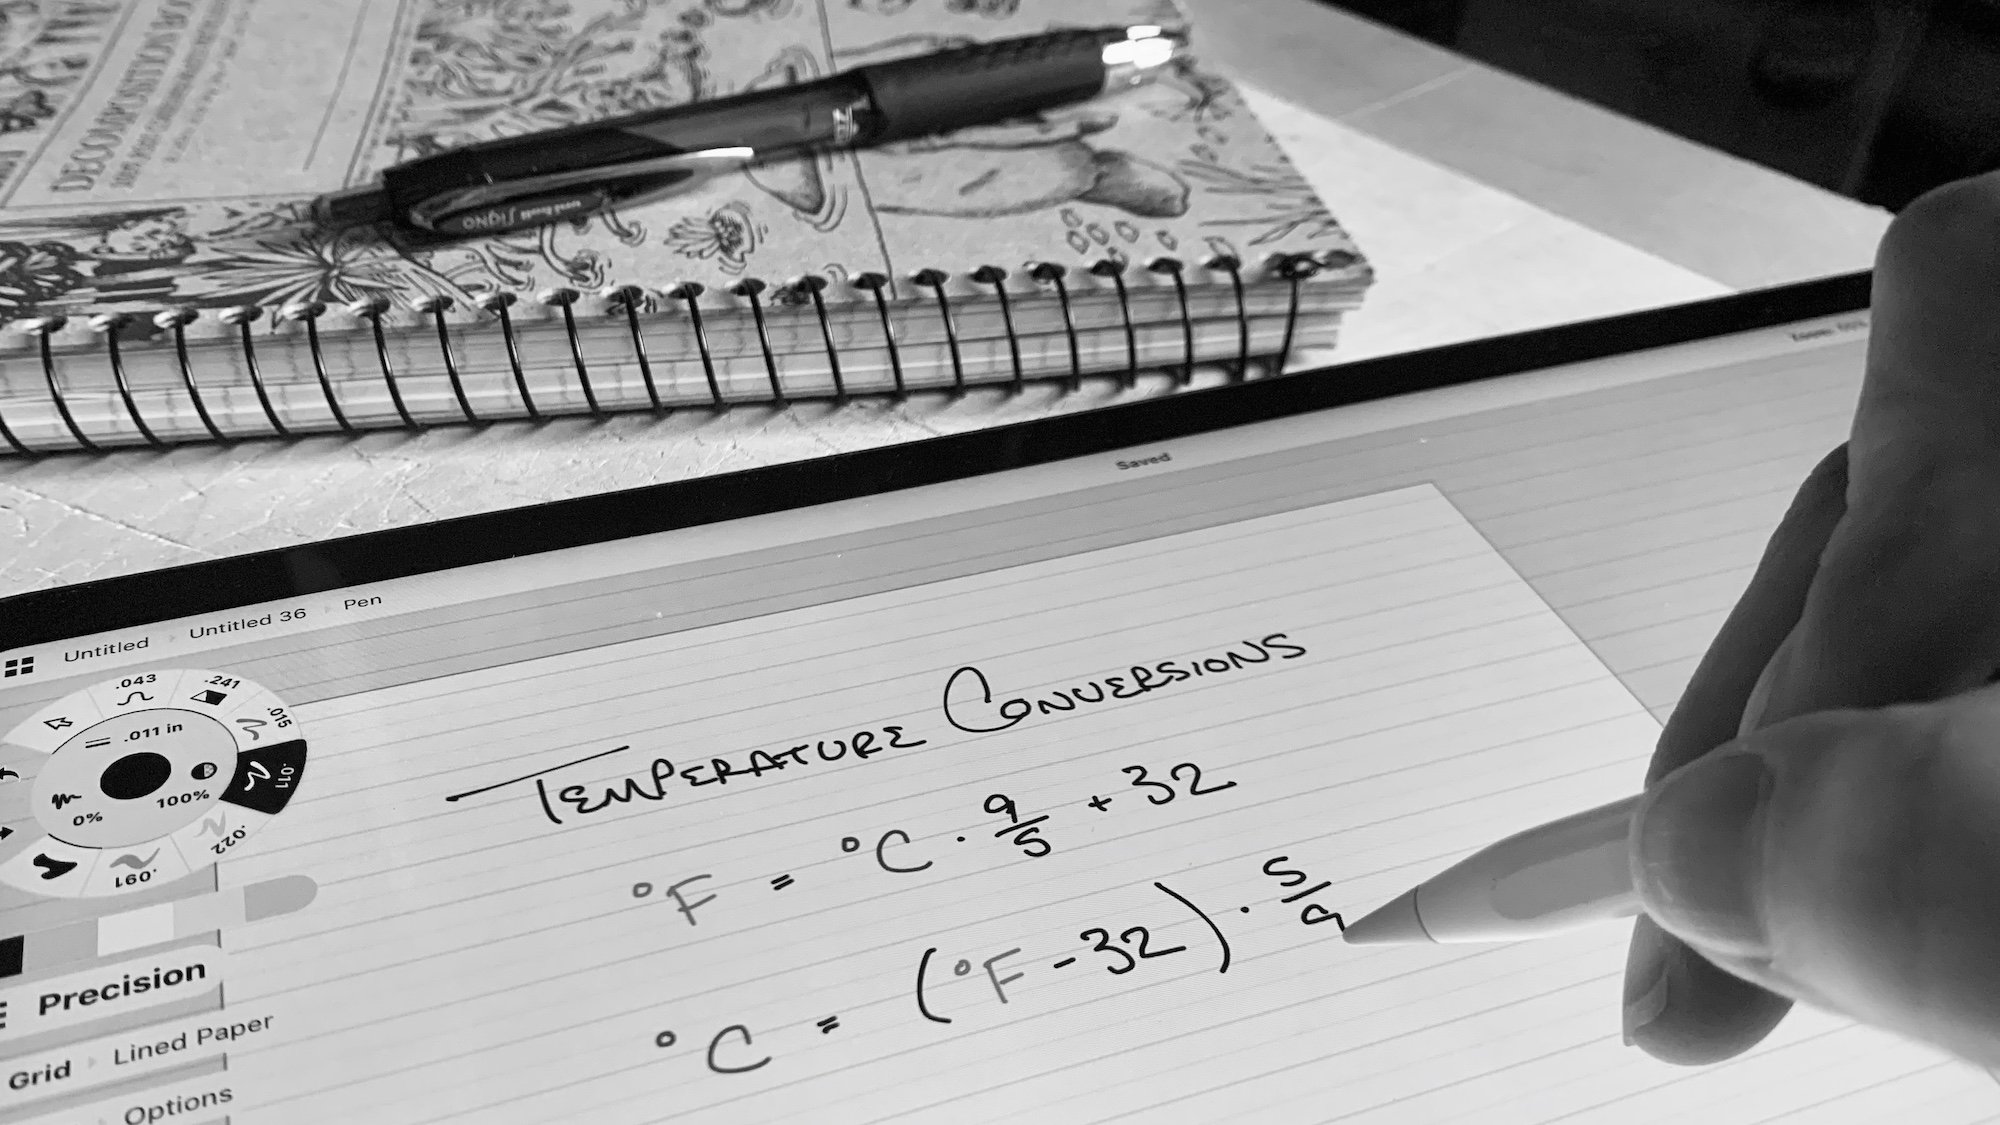 DECOMPOSITION BOOK
uni-ball SIGNO
Saved
Untitled
Untitled 36
Pen
.043
.241
.015
.011 in
.011
100%
0%
.022
.091
TEMPERATURE CONVERSIONS
°F = °C · 9/5 + 32
°C = (°F - 32) · 5/9
Precision
Grid
Lined Paper
Options